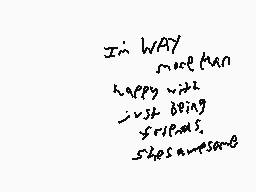 I'm WAY
more than
happy with
just being
friends.
shes awesome